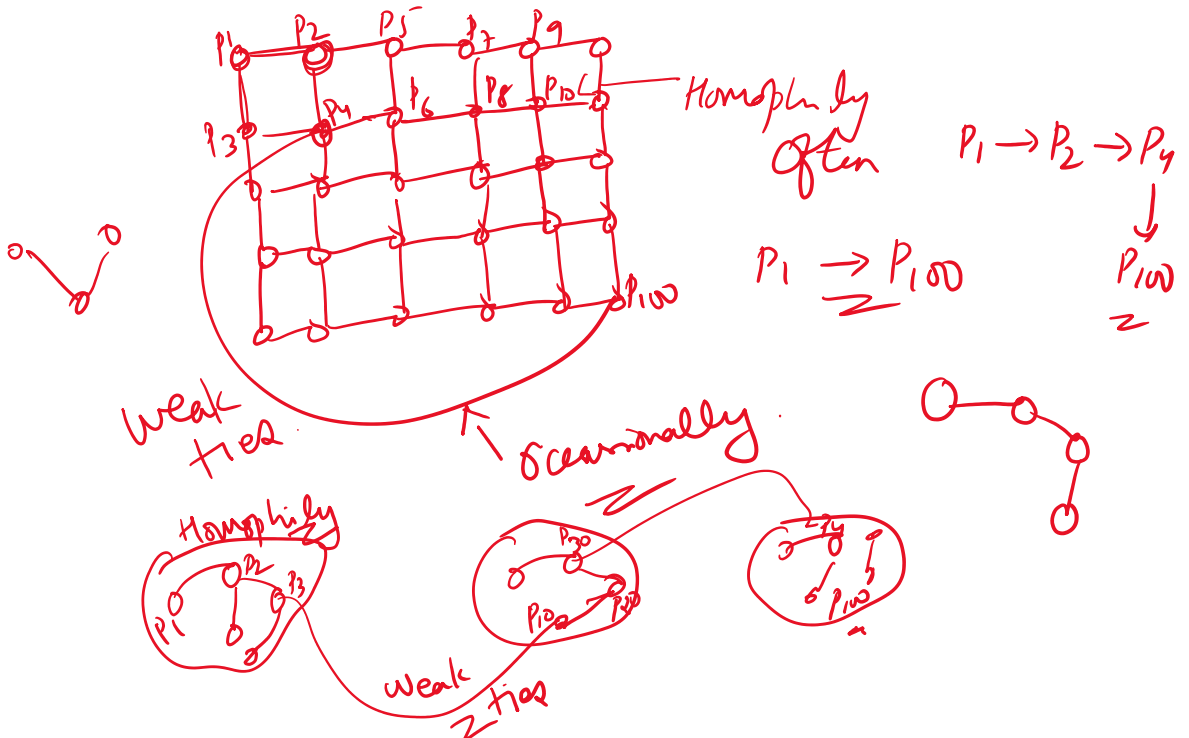 P1 P2 P5 P7 P9
P3 P4 P6 P8 P10
Homophily
often
P1 → P2 → P4
↓
P100
P1 → P100
P100
weak
ties
Occassionally
Homophily
P1 P2 P3
P30
P10
P100
weak
ties